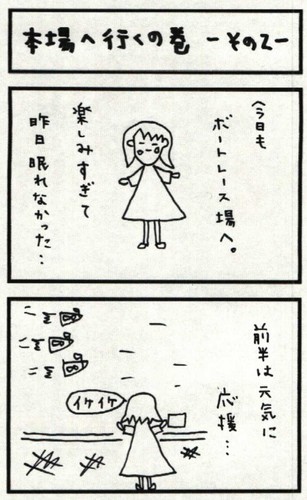 本場へ行くの巻 ーその2ー
今日も
ボートレース場へ。
楽しみすぎて
昨日眠れなかった…
前半は元気に
応援…
イケイケ